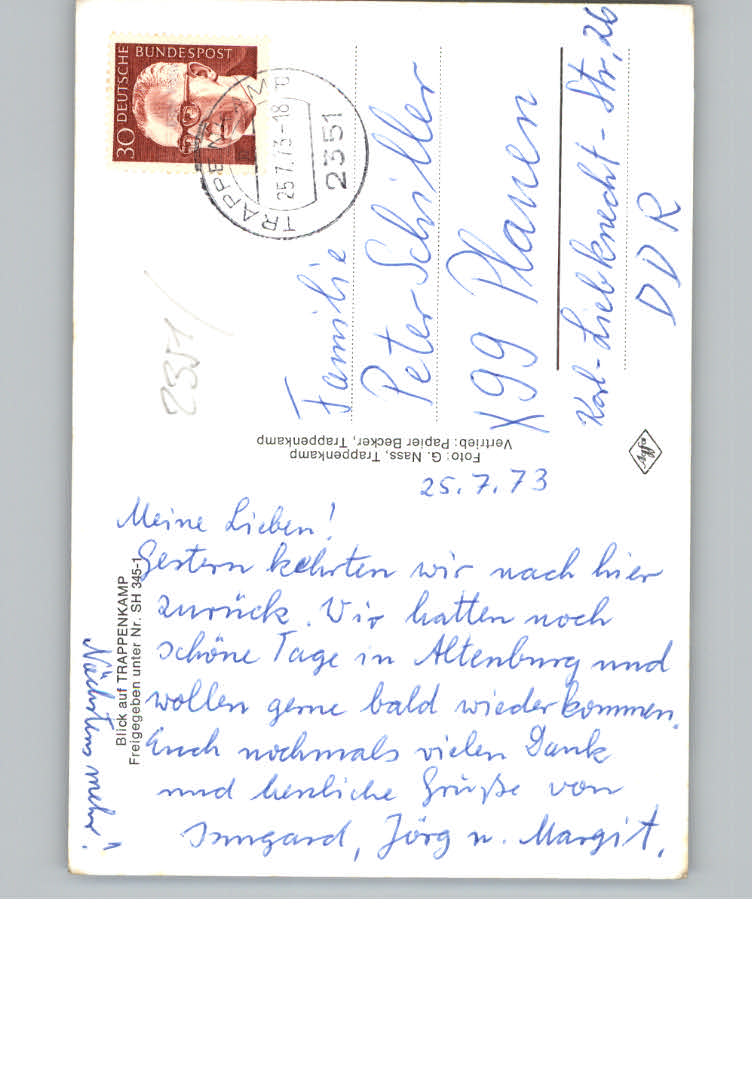 30 DEUTSCHE BUNDESPOST
TRAPPENKAMP
25.7.73-18
2351
2351/
Familie
Peter Schiller
X99 Plauen
Karl-Liebknecht-Str, 26
DDR
Foto: G. Nass, Trappenkamp
Vertrieb: Papier Becker, Trappenkamp
Agfa
25.7.73
Meine Lieben!
Gestern kehrten wir nach hier
zurück. Wir hatten noch
schöne Tage in Altenburg und
wollen gerne bald wiederkommen.
Euch nochmals vielen Dank
und herzliche Grüße von
Irmgard, Jörg u. Margit.
Nächstens mehr!
Blick auf TRAPPENKAMP
Freigegeben unter Nr. SH 345-1